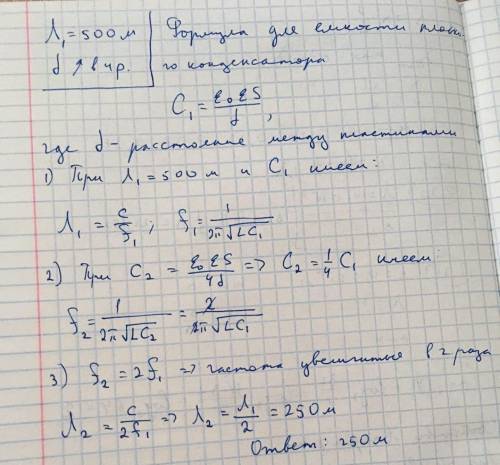 Λ₁ = 500 м | Формула для емкости плоско-
d ↑ в 4 р. | го конденсатора
C₁ = ε₀εS/d ,
где d – расстояние между пластинами
1) При Λ₁ = 500 м и C₁ имеем:
Λ₁ = c/f₁ ; f₁ = 1/(2π√LC₁)
2) При C₂ = ε₀εS/4d => C₂ = 1/4 C₁ имеем:
f₂ = 1/(2π√LC₂) = 2/(2π√LC₁)
3) f₂ = 2f₁ => частота увеличится в 2 раза
Λ₂ = c/2f₁ => Λ₂ = Λ₁/2 = 250 м
Ответ: 250 м